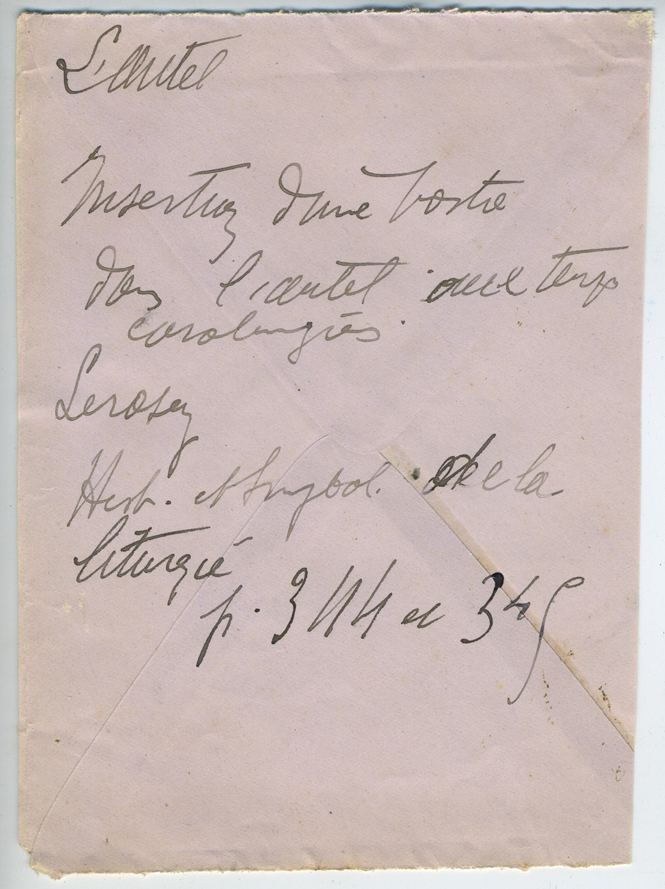 L'autel
Insertion d'une hostie
dans l'autel aux temps
carolingiens.
Lerosey
Hist. et Symbol. de la
liturgie
p. 344 et 345